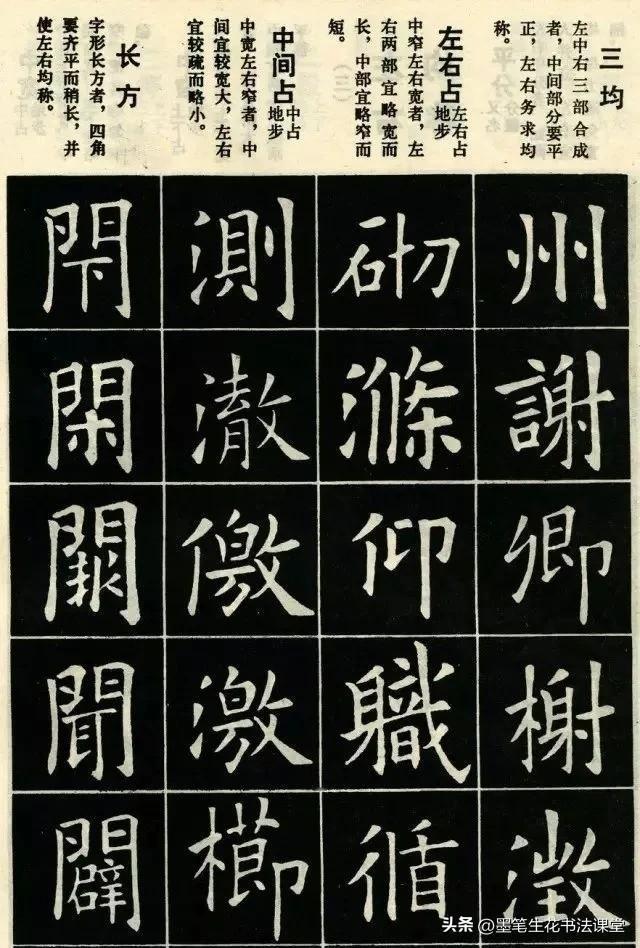 三均
左中右三部合成
者,中间部分要平
正,左右务求均
称。
左右占
左右占
地步
中窄左右宽者,左
右两部宜略宽而
长,中部宜略窄而
短。
中间占
中占
地步
中宽左右窄者,中
间宜较宽大,左右
宜较疏而略小。
长方
字形长方者,四角
要齐平而稍长,并
使左右均称。
州謝卿榭澂
砌滌仰職循
測澈儌激櫛
閇閑聞闢
头条 @墨笔生花书法课堂